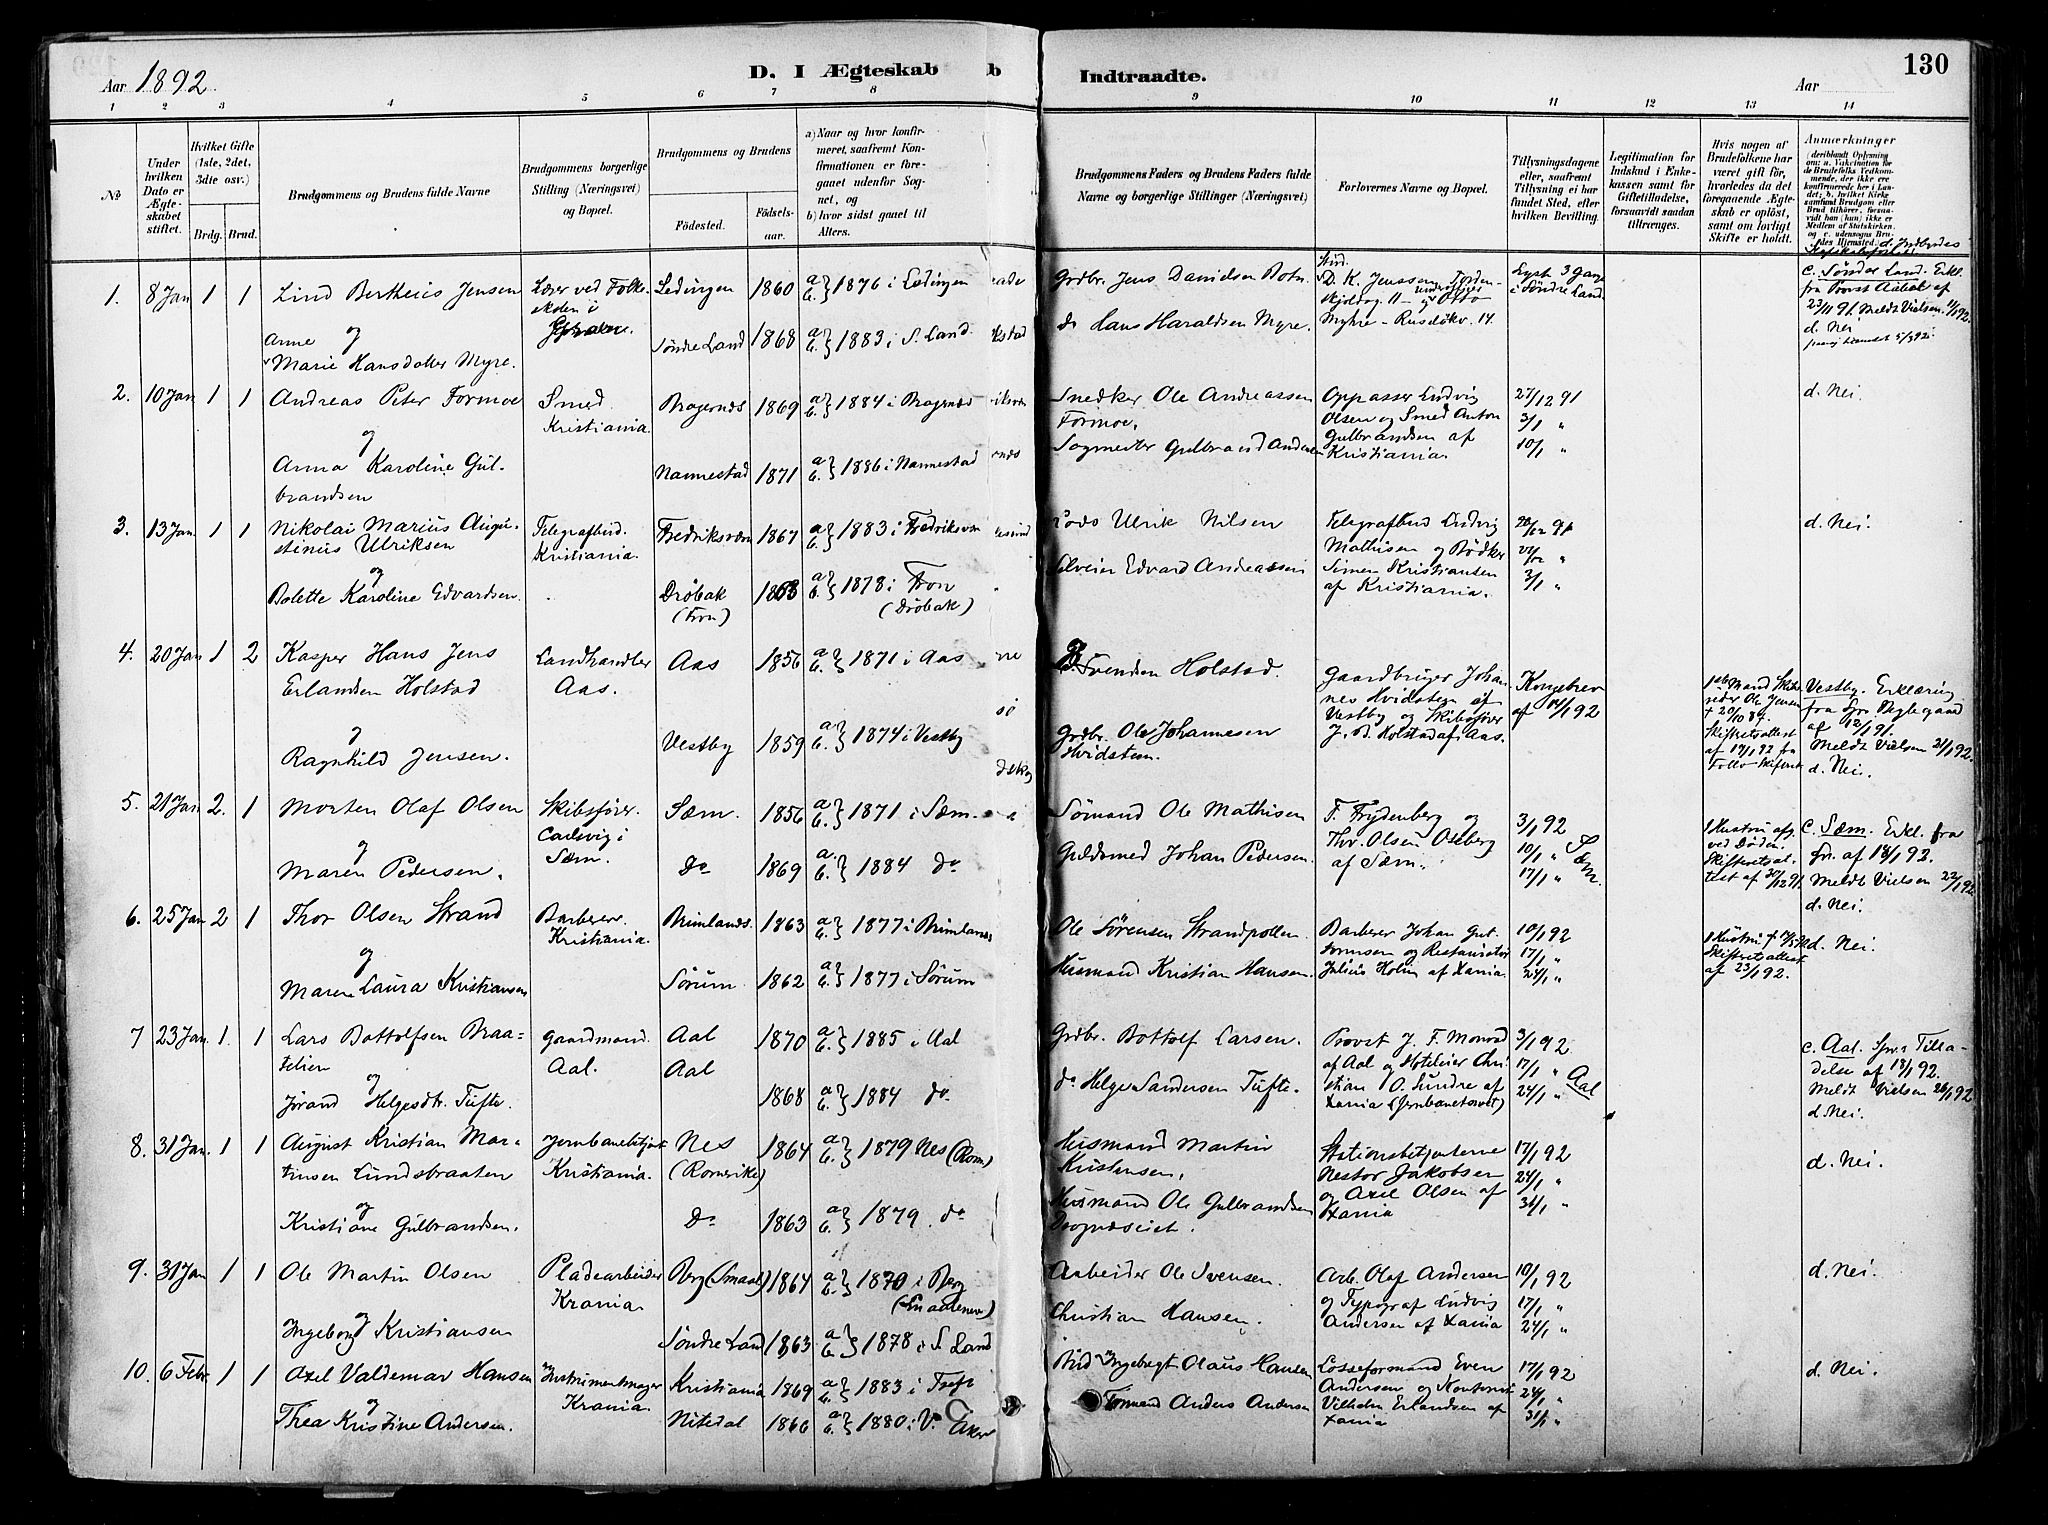 Aar 1892. D. I Ægteskab b Indtraadte. Aar 130
1 2 3 4 5 6 7 8 9 10 11 12 13 14
No
Under hvilken Dato er Ægteskabet stiftet.
Hvilket Gifte (1ste, 2det, 3die osv.)
Brdg. Brud.
Brudgommens og Brudens fulde Navne
Brudgommens borgerlige Stilling (Næringsvei) og Bopæl.
Brudgommens og Brudens
Födested. Födsels-aar.
a) Naar og hvor konfirmeret, saafremt Konfirmationen er foregaaet udenfor Sognet, og
b) hvor sidst gaaet til Alters.
Brudgommens Faders og Brudens Faders fulde Navne og borgerlige Stillinger (Næringsvei)
Forlovernes Navne og Bopæl.
Tillysningsdagene eller, saafremt Tillysning ei har fundet Sted, efter hvilken Bevilling.
Legitimation for Indskud i Enkekassen samt for Giftetilladelse, forsaavidt saadan tiltrænges.
Hvis nogen af Brudefolkene har været gift för, hvorledes da det foregaaende Ægteskab er oplöst, samt om lovligt Skifte er holdt.
Anmærkninger
1. 8 Jan 1 1 Lind Bertheus Jensen
Lærer ved Folkeskolen i
Lødingen 1860 a b } 1876 i Lødingen
Grdbr. Jens Danielsen Botn
Lyst 3 Gange i Söndre Land.
c. Sønder Land. Erkl. fra Provst Aabel af 23/11 91. Meldt Vielsen 11/1 92.
d. Nei
Anne og
Marie Hansdatter Myre.
Söndre Land 1868 a b } 1883 i S. Land.
do Hans Haraldsen Myre.
Myhre - Ruselökv. 14.
2. 10 Jan 1 1 Andreas Peter Formoe
Smed. Kristiania.
Bragernæs 1869 a b } 1884 i Bragernæs
Snedker Ole Andreassen Formoe.
Oppasser Ludvig Olsen og Smed Anton Gulbrandsen af Kristiania.
27/12 91
3/1 "
10/1 "
d. Nei.
og
Anna Karoline Gulbrandsen
Nannestad 1871 a b } 1886 i Nannestad
Sagmester Gulbrand Andersen
3. 13 Jan 1 1 Nikolai Marius Augustinus Ulriksen
Telegrafbud. Kristiania.
Fredriksværn 1867 a b } 1883 i Fredriksværn
Lods Ulrik Nilsen
Telegrafbud Ludvig Mathisen og Bödker Simen Kristiansen af Kristiania.
3/1 "
d. Nei.
og
Bolette Karoline Edvardsen.
Dröbak (Fron) 1863 a b } 1878 i Fron (Dröbak)
Edvard Andreassen
4. 20 Jan 1 2 Kasper Hans Jens Erlandsen Holstad
Landhandler Aas.
Aas 1856 a b } 1871 i Aas
Svendsen Holstad.
Gaardbruger Johannes Hvidsten af Vestby og Skibsförer J. B. Holstad af Aas.
Kongebrev af 14/1 92
Vestby. Erklæring fra Spr. Neglegaard af 12/1 91.
Meldt Vielsen 21/1 92.
d. Nei.
og
Ragnhild Jensen.
Vestby 1859 a b } 1874 i Vestby
Grdbr. Ole Johannesen Hvidsteen.
5. 21 Jan 2. 1 Morten Olaf Olsen
Skibsförer. Carlsvig i Sæm.
Sæm. 1856 a b } 1871 i Sæm.
Sömand Ole Mathisen
F. Frydenberg og Thv. Olsen Oseberg af Sæm.
3/1 92
10/1 "
17/1 "
Sæm.
1 Hustru afg. ved Döden. Skifteretsattest af 30/12 91.
c. Sæm. Erkl. fra Spr. af 18/1 92.
Meldt Vielsen 22/1 92.
d. Nei.
og
Maren Pedersen.
Do 1869 a b } 1884 do
Guldsmed Johan Pedersen.
6. 25 Jan 2 1 Thor Olsen Strand
Barberer. Kristiania.
Brunlanæs. 1863 a b } 1877 i Brunlanæs
Ole Sörensen Strandpollen.
Barberer Johan Guttormsen og Restauratör Julius Holm af Xania.
10/1 92
17/1 "
24/1 "
Skifteretsattest af 23/1 92.
d. Nei.
og
Maren Laura Kristiansen
Sörum. 1862 a b } 1877 i Sörum
Husmand Kristian Hansen.
7 23 Jan. 1. 1 Lars Bottolfsen Braatelien
Gaardmand. Aal.
Aal 1870 a b } 1885 i Aal
Grdbr. Bottolf Larsen.
Provst J. F. Monrad af Aal og Hoteleier Christian O. Sundre af Xania (Jernbanetorvet)
3/1 92
17/1 "
24/1 "
Aal
c. Aal. Spr.s Tilladelse af 18/1 92.
Meldt Vielsen 26/1 92
d. Nei.
og
Jörand Helgesdtr. Tufte.
Aal 1868 a b } 1884 do.
do Helge Sandersen Tufte.
8. 31 Jan. 1 1 August Kristian Martinsen Lundsbraaten
Jernbanebetjent Kristiania.
Nes (Romerike) 1864 a b } 1879 Nes (Rom)
Husmand Martin Kristensen.
Stationsbetjenterne Nestor Jakobsen og Axel Olsen af Xania
17/1 92
24/1 "
31/1 "
d. Nei.
og
Kristiane Gulbrandsen.
Do 1863 a b } 1879. do
Husmand Ole Gulbrandsen
9. 31 Jan 1 1 Ole Martin Olsen
Pladearbeider Krania.
Berg (Smaal) 1864 a b } 1870 i Berg (Smaalenene)
Arbeider Ole Svensen.
Arb. Olaf Andersen og Typograf Ludvig Andersen af Xania
10/1 92
17/1 "
24/1 "
d. Nei.
og
Ingeborg Kristiansen
Söndre Land 1863 a b } 1878 i S Land
Christian Hansen.
10. 6 Febr. 1 1 Axel Valdemar Hansen
Instrumentmager Krania.
Kristiania 1869 a b } 1883 i Trefr
Bud Ingebregt Olaus Hansen
Losseformand Even Andersen og Kontorist Vilhelm Erlandsen af Xania
17/1 92
24/1 "
31/1 "
d. Nei.
og
Thea Kristine Andersen.
Nitedal 1866 a b } 1880 i V. Aker
Formand Anders Andersen